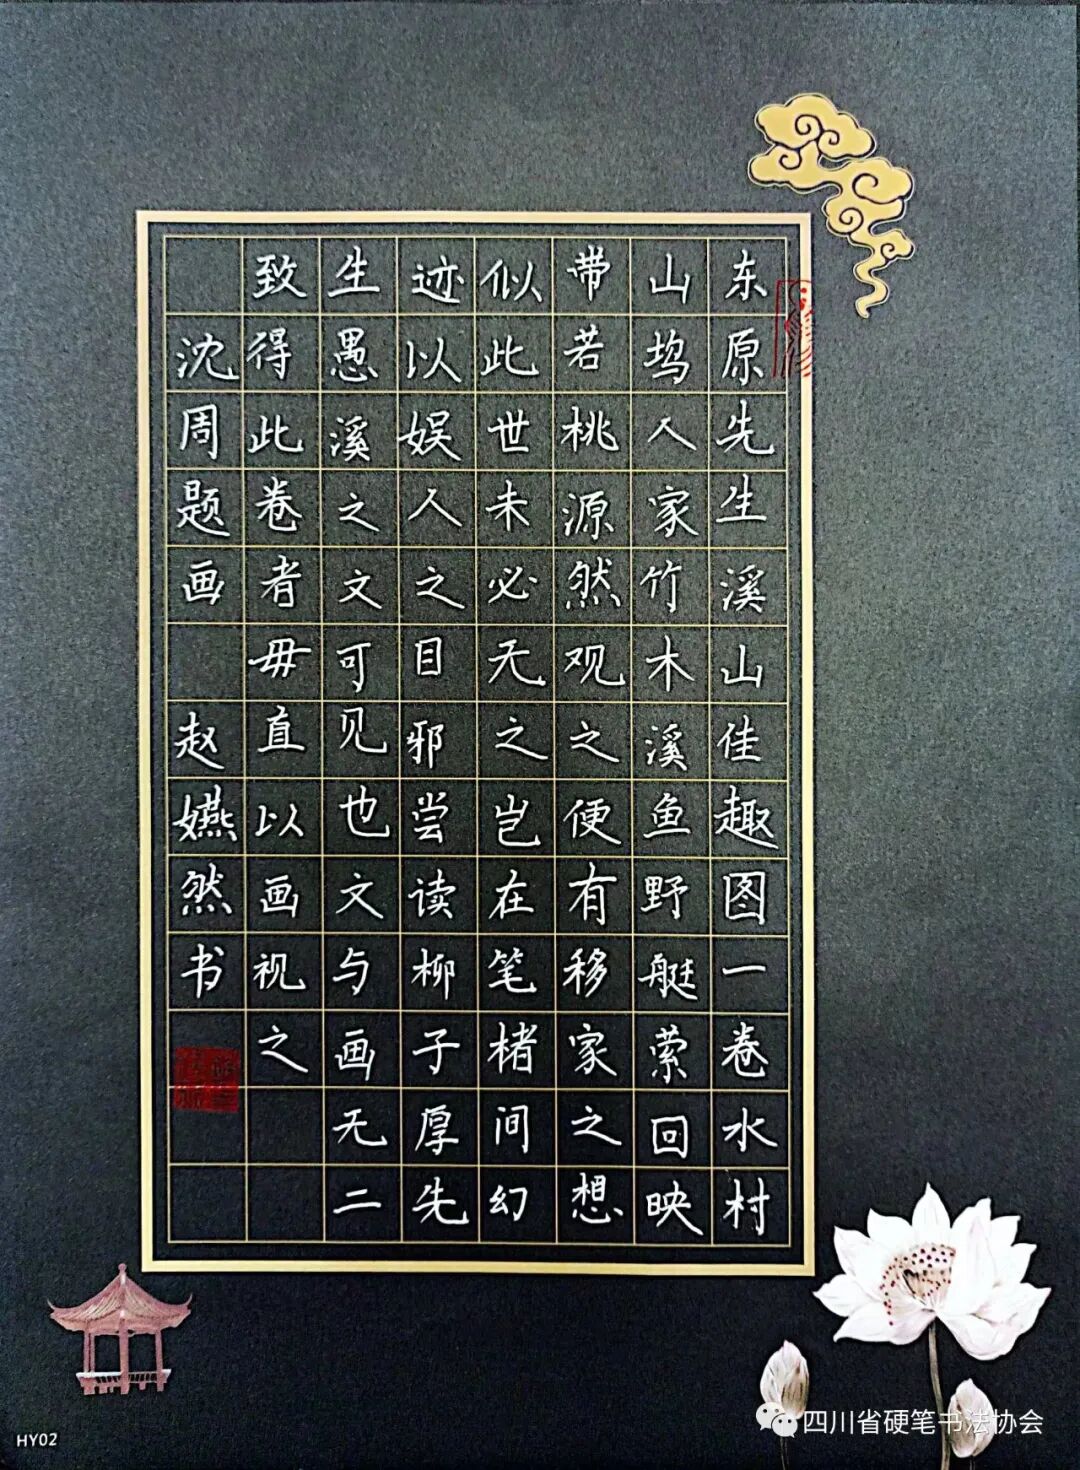 东原先生溪山佳趣图一卷水村
山坞人家竹木溪鱼野艇萦回映
带若桃源然观之便有移家之想
似此世未必无之岂在笔楮间幻
迹以娱人之目邪尝读柳子厚先
生愚溪之文可见也文与画无二
致得此卷者毋直以画视之
沈周题画 赵嬿然书
HY02
四川省硬笔书法协会